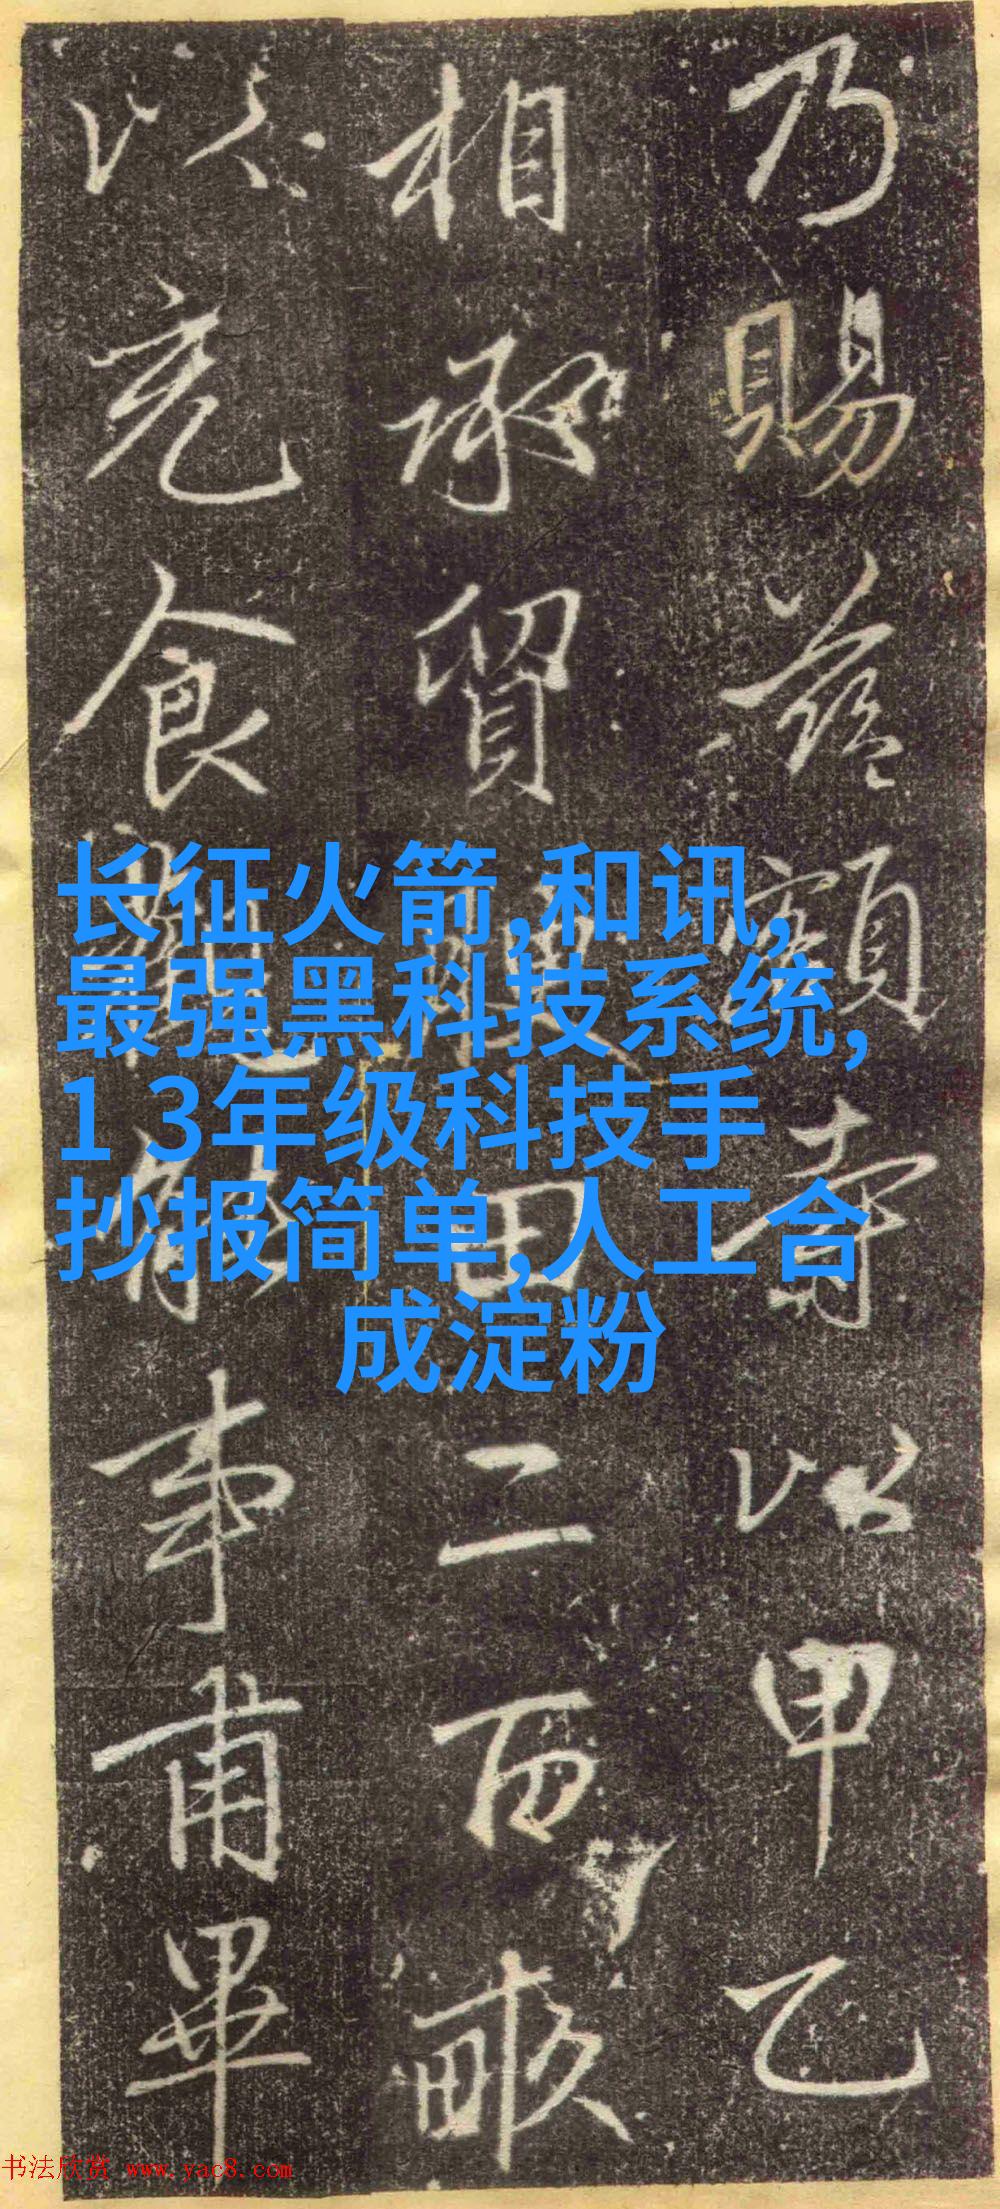 乃賜額以甲乙
相承買腴田二百畝
以充食能事甫畢
长征火箭,和讯,
最强黑科技系统,
1 3年级科技手
抄报简单,人工合
成淀粉
书法欣赏 www.yac8.com